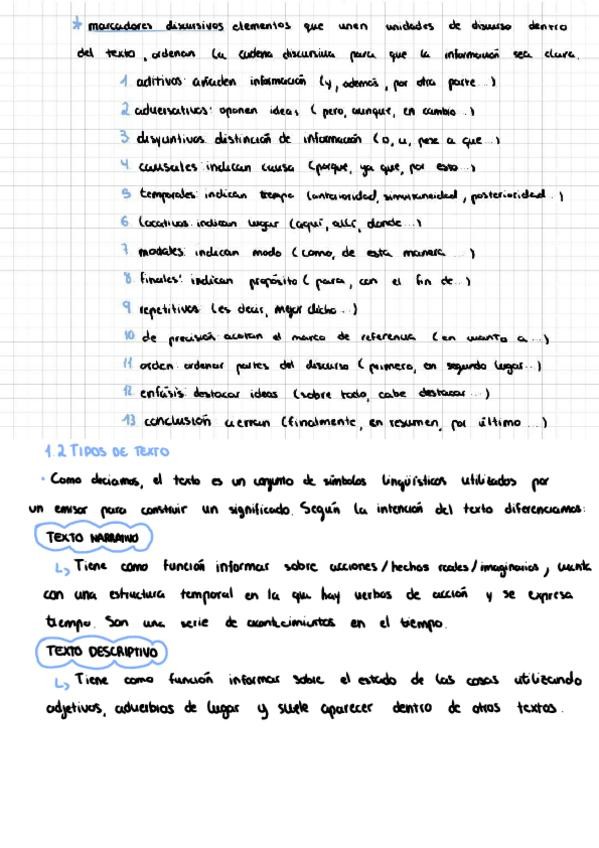 * marcadores discursivos elementos que unen unidades de discurso dentro
del texto, ordenan la cadena discursiva para que la información sea clara.
1 aditivos: añaden información (y, además, por otra parte...)
2 adversativos: oponen ideas (pero, aunque, en cambio...)
3 disyuntivos distinción de información (o, u, pese a que...)
4 causales indican causa (porque, ya que, por esto...)
5 temporales: indican tiempo (anterioridad, simultaneidad, posterioridad...)
6 locativos indican lugar (aquí, allí, donde...)
7 modales: indican modo (como, de esta manera...)
8 finales: indican propósito (para, con el fin de...)
9 repetitivos (es decir, mejor dicho...)
10 de precisión acotan el marco de referencia (en cuanto a...)
11 orden ordenar partes del discurso (primero, en segundo lugar...)
12 enfásis destacar ideas (sobre todo, cabe destacar...)
13 conclusión cierran (finalmente, en resumen, por último...)
1.2 TIPOS DE TEXTO
· Como decíamos, el texto es un conjunto de símbolos lingüísticos utilizados por
un emisor para construir un significado. Según la intención del texto diferenciamos:
TEXTO NARRATIVO
↳ Tiene como función informar sobre acciones/hechos reales/imaginarios, cuenta
con una estructura temporal en la que hay verbos de acción y se expresa
tiempo. Son una serie de acontecimientos en el tiempo.
TEXTO DESCRIPTIVO
↳ Tiene como función informar sobre el estado de las cosas utilizando
adjetivos, adverbios de lugar y suele aparecer dentro de otros textos.